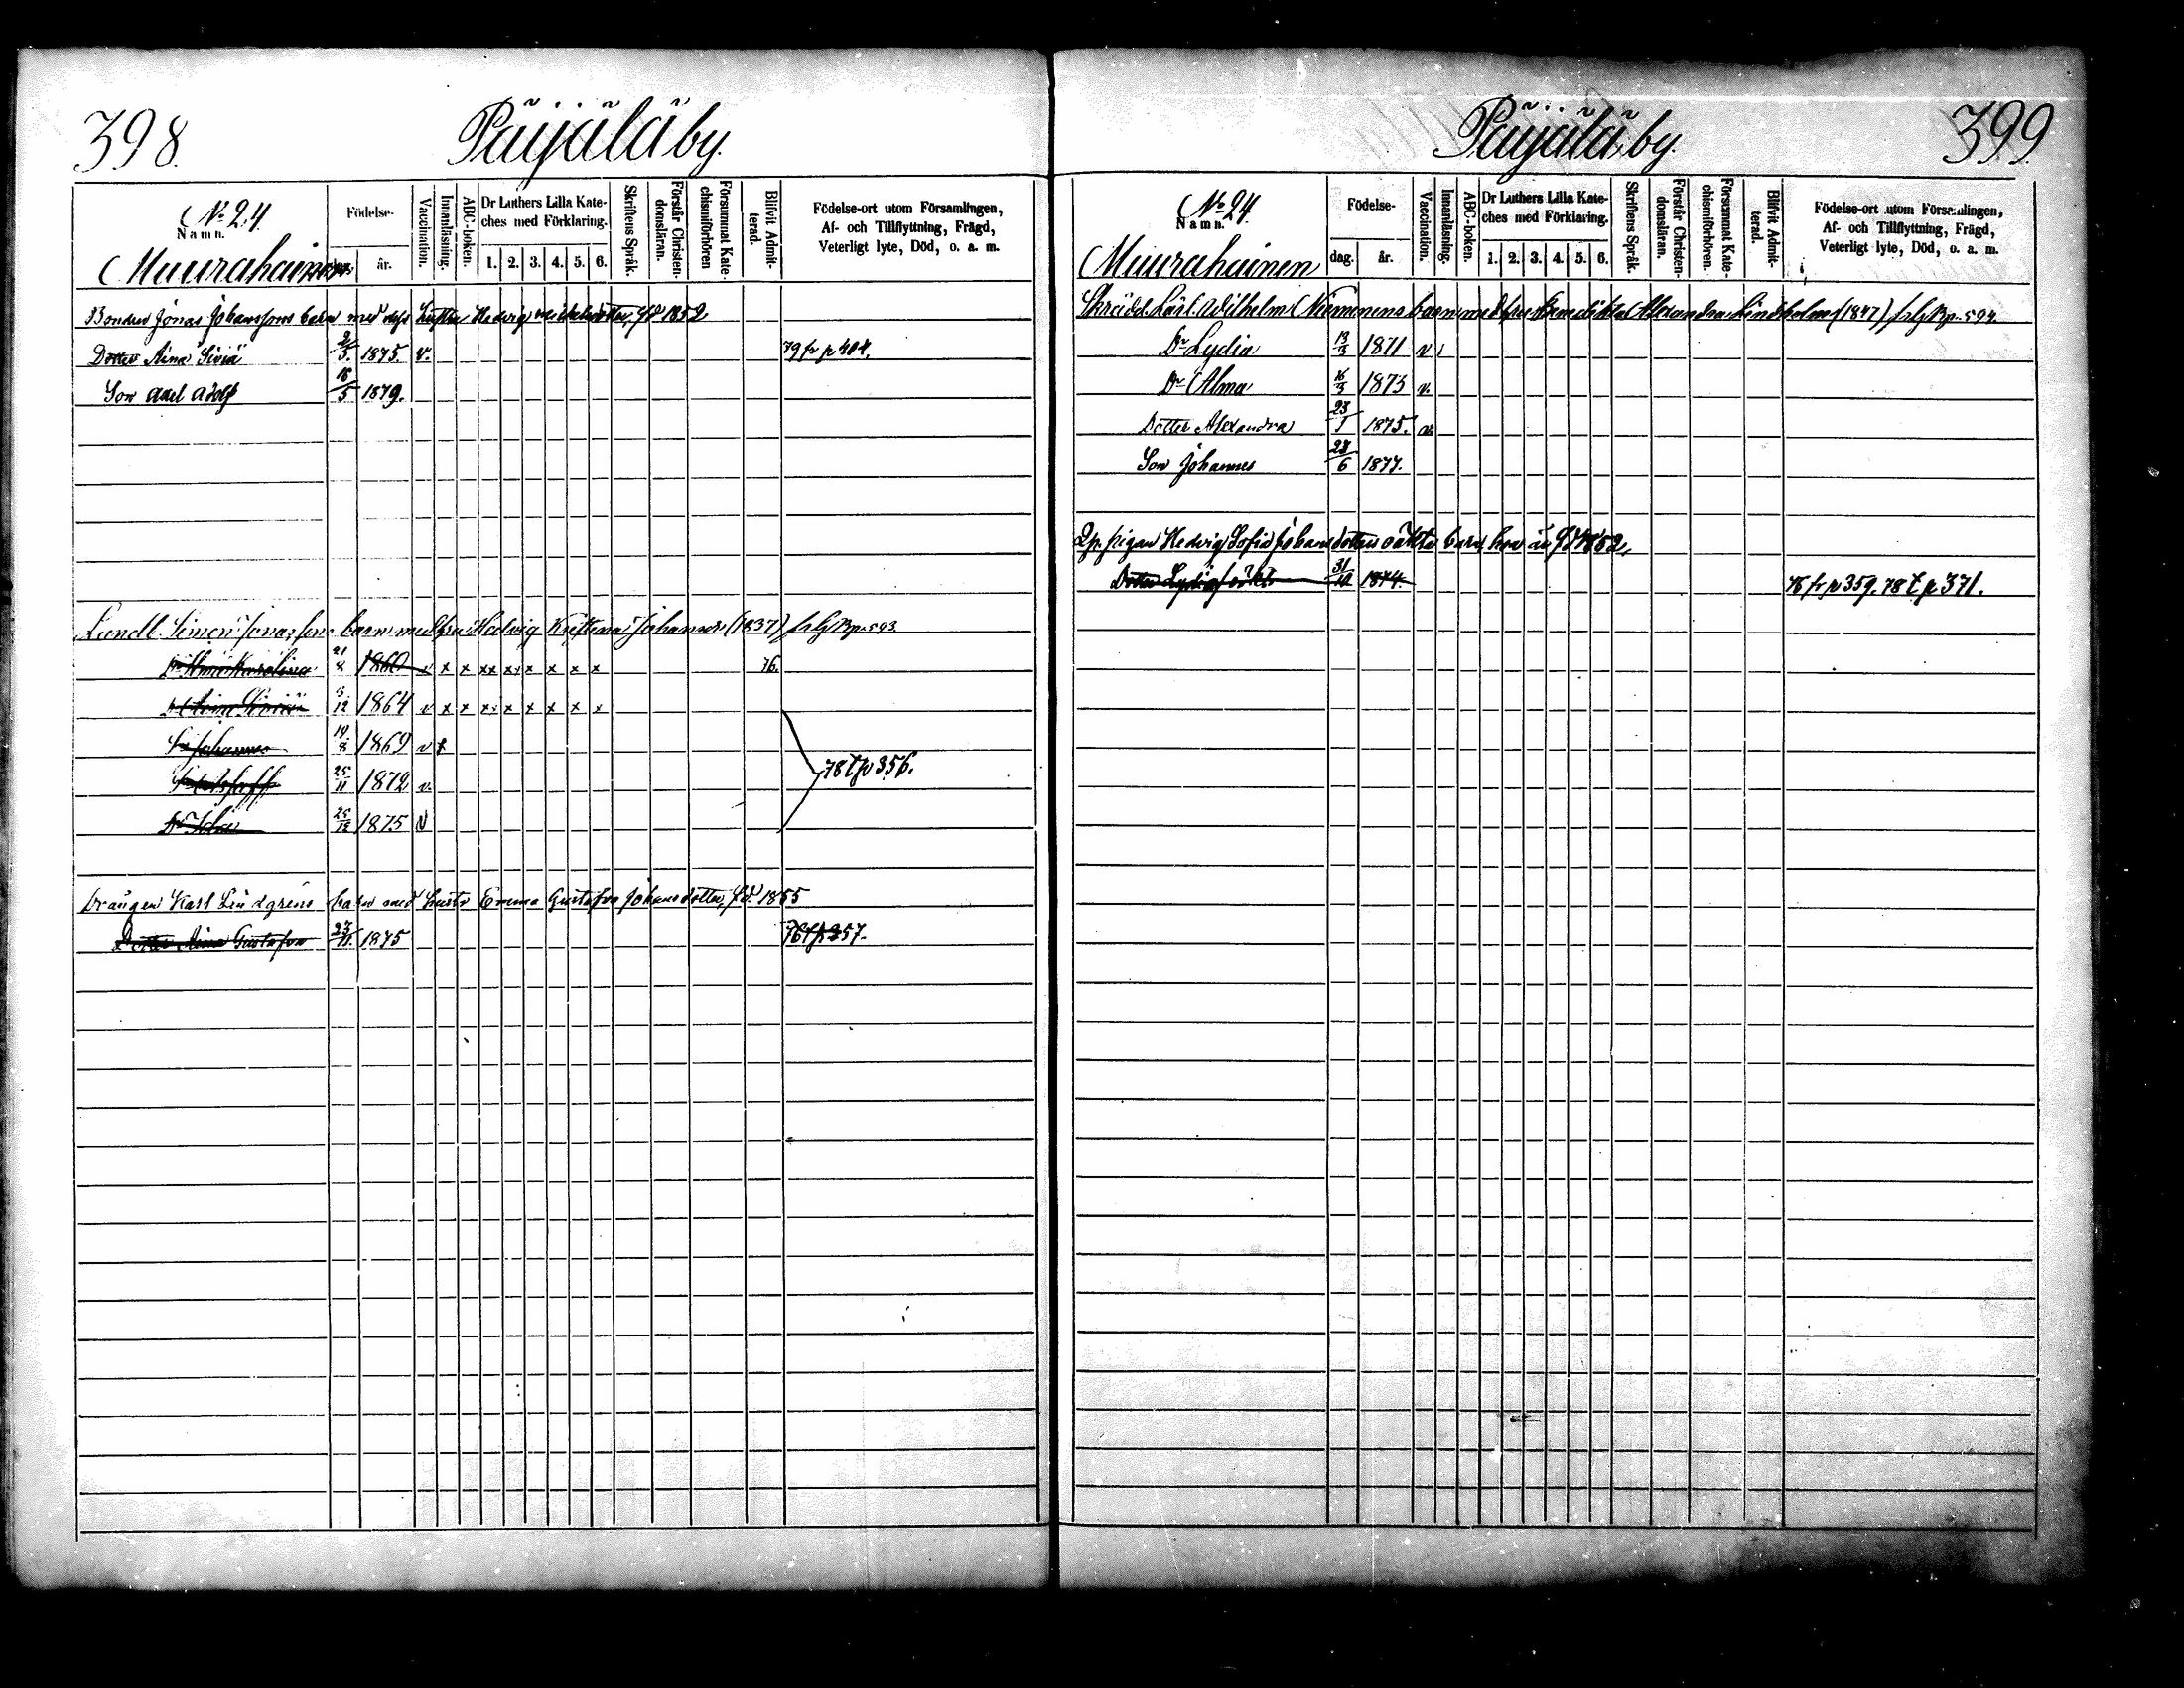 398.
Päijälä by.
No 24
Namn.
Födelse-
år.
Vaccination.
Innanläsning.
ABC-boken.
Dr Luthers Lilla Kate-
ches med Förklaring.
1. 2. 3. 4. 5. 6.
Skriftens Språk.
Förstår Christen-
domsläran.
Försummat Kate-
chismiförhören
Blifvit Admit-
terad.
Födelse-ort utom Församlingen,
Af- och Tillflyttning, Frägd,
Veterligt lyte, Död, o. a. m.
Muurahainen
Bonden Jonas Johanssons barn med dess hustru Hedvig Michelsdotter, fd 1852
Dotter Aina Siviä 2/3. 1875. v. 79 fr p 404.
Son Axel Adolf 18/5 1879.
Lundb. Simon Jonassons barn med hru Hedvig Kristina Johansdr (1837) K.bp. 593.
Dr Karolina 21/8 1860 v x x xx xx x x x x 76.
12 1864 v x x x x x x x
Sn Johannes 19/8 1869 v x
25/11 1872 v.
78 t p 356.
Dr 25/12 1875 v
Drängen Karl Lindgrens barn med hustr Emma Gustafva Johansdotter, fd. 1855
Dotter Aina Gustafva 23/11. 1875 76 t p 357.
Päijälä by.
399
No 24.
Namn.
Födelse-
dag. år.
Vaccination.
Innanläsning.
ABC-boken.
Dr Luthers Lilla Kate-
ches med Förklaring.
1. 2. 3. 4. 5. 6.
Skriftens Språk.
Förstår Christen-
domsläran.
Försummat Kate-
chismiförhören.
Blifvit Admit-
terad.
Födelse-ort utom Församlingen,
Af- och Tillflyttning, Frägd,
Veterligt lyte, Död, o. a. m.
Muurahainen
Skrädd. Karl Wilhelm Nieminens barn med hru Benedikta Alexandra Lindholm (1847) K.bp. 594.
Dr Lydia 13/3 1871 v
Dr Alma 16/3 1873 v.
Dotter Alexandra 23/1 1875. v.
Son Johannes 23/6 1877.
Qp. pigan Hedvig Sofia Johansdotters oäkta barn, hon är fd 1852,
Dotter Lydia, oäkta 31/10 1874. 76 fr p 359. 78 t p 371.